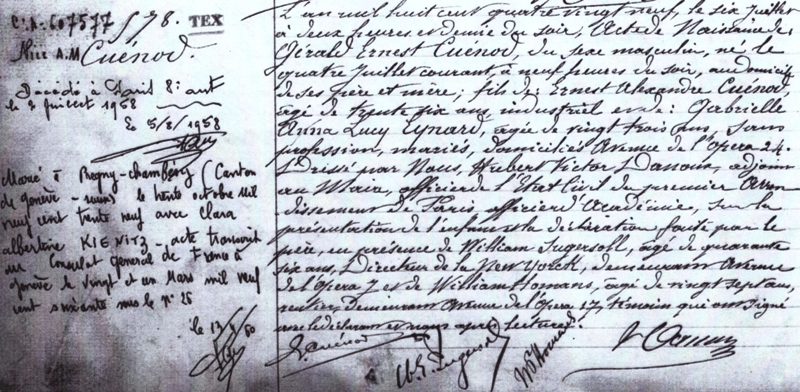 C.A. 607577
578. TEX
Nice A.M
Cuénod.
Décédé à Paris 8: ant
le 2 juillet 1958
le 5/8/1958
Marié à Pregny-chambéry (Canton
de genève - suisse) le trente octobre mil
neuf cent trente neuf avec clara
albertine KIENITZ - acte transcrit
au Consulat general de France à
genève le vingt et un Mars mil neuf
cent soixante sous le n° 25
le 13 60
L'an mil huit cent quatre vingt neuf, le six juillet
à deux heures et demie du soir, Acte de Naissance de:
Gérald Ernest Cuénod, du sexe masculin, né le
quatre juillet courant, à neuf heures du soir, au domicile
de ses père et mère; fils de: Ernest Alexandre Cuénod,
âgé de trente six ans, industriel et de: Gabrielle
Anna Lucy Eynard, âgée de vingt trois ans, sans
profession, mariés, domiciliés Avenue de l'Opera 24.
Dressé par Nous, Hubert Victor Danoux, adjoint
au Maire, officier de l'Etat Civil du premier Arron
dissement de Paris, officier d'Académie, sur la
présentation de l'enfant et la déclaration faite par le
père, en présence de William Ingersoll, âgé de quarante
six ans, Directeur de la New Yorck, demeurant Avenue
de l'Opera 7 et de William Homans, âgé de vingt sept ans,
rentier, demeurant Avenue de l'Opera 17, témoins qui ont signé
avec le déclarant et nous après lecture.
Cuénod
Ingersoll
Wm Homans